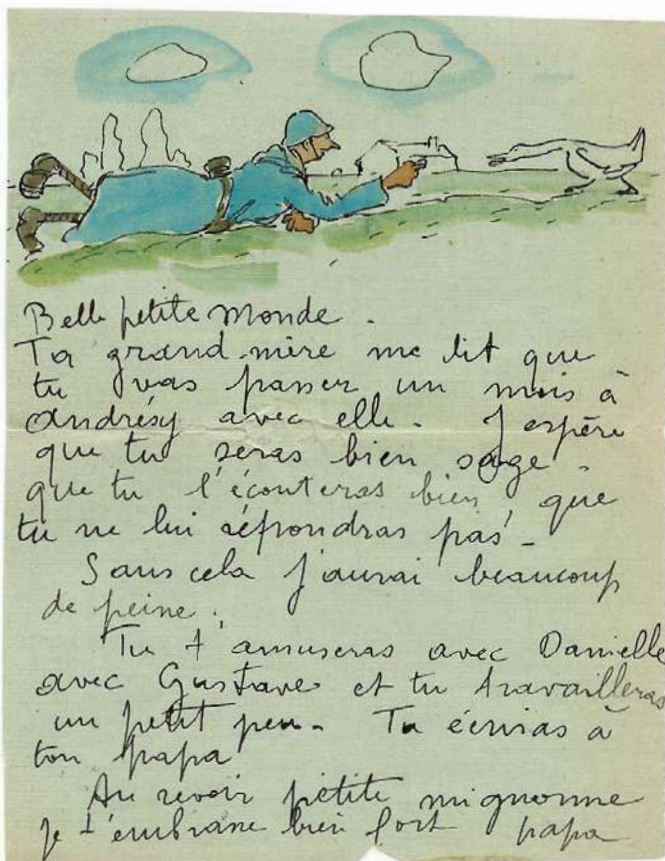 Belle petite monde.
Ta grand-mère me dit que
tu vas passer un mois à
andrésy avec elle. J'espère
que tu seras bien sage.
que tu l'écouteras bien, que
tu ne lui répondras pas.
Sans cela j'aurai beaucoup
de peine.
Tu t'amuseras avec Danielle
avec Gustave et tu travailleras
un petit peu. Tu écriras à
ton papa
Au revoir petite mignonne
je t'embrasse bien fort papa